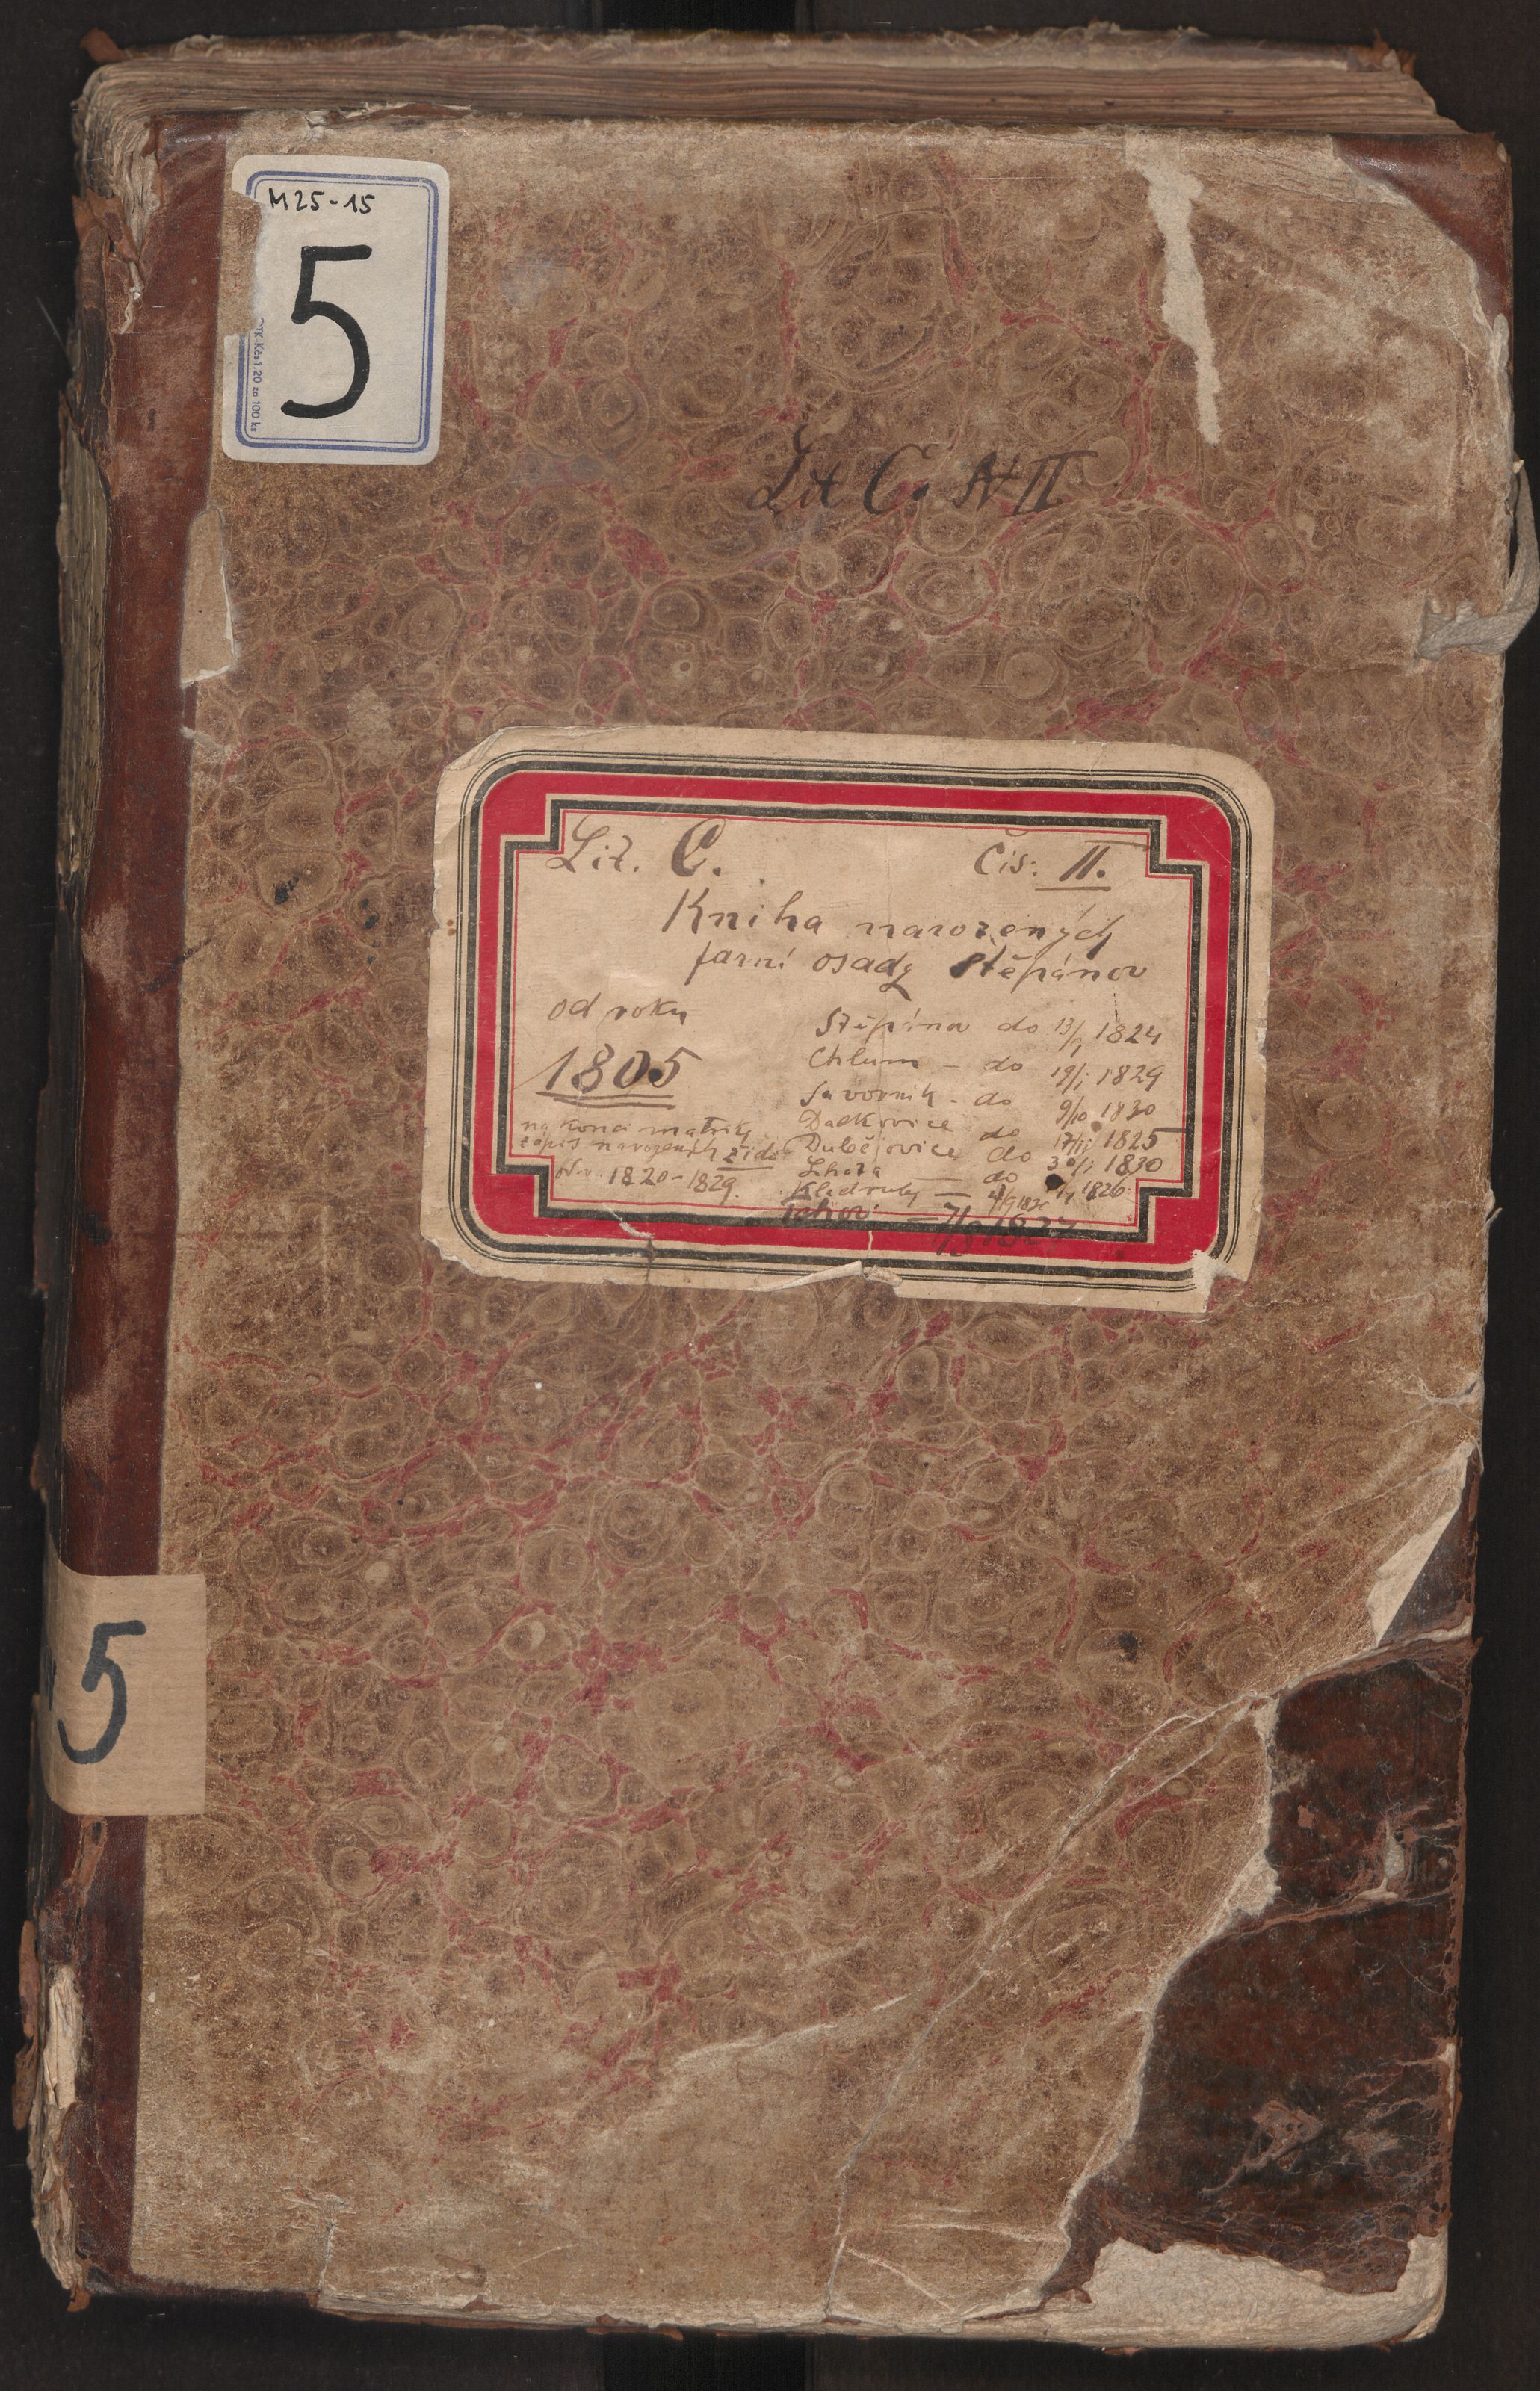 M25-15
5
Kčs 1,20 za 100 ks
Lit C. N II
Lit. C. Čís: II.
Kniha narozených
farní osady Štěpánov
od roku
1805
na konci matriky
zápis narozených židů
od r. 1820-1829.
Štěpánov do 13/9 1824
Chlum - do 19/1 1829
Savorník - do 9/10 1830
Dalkovice do 17/11 1825
Dubějovice do 30/1 1830
Lhota — do 1826
Kladruby —
Tehov. - 7/8 1827
5